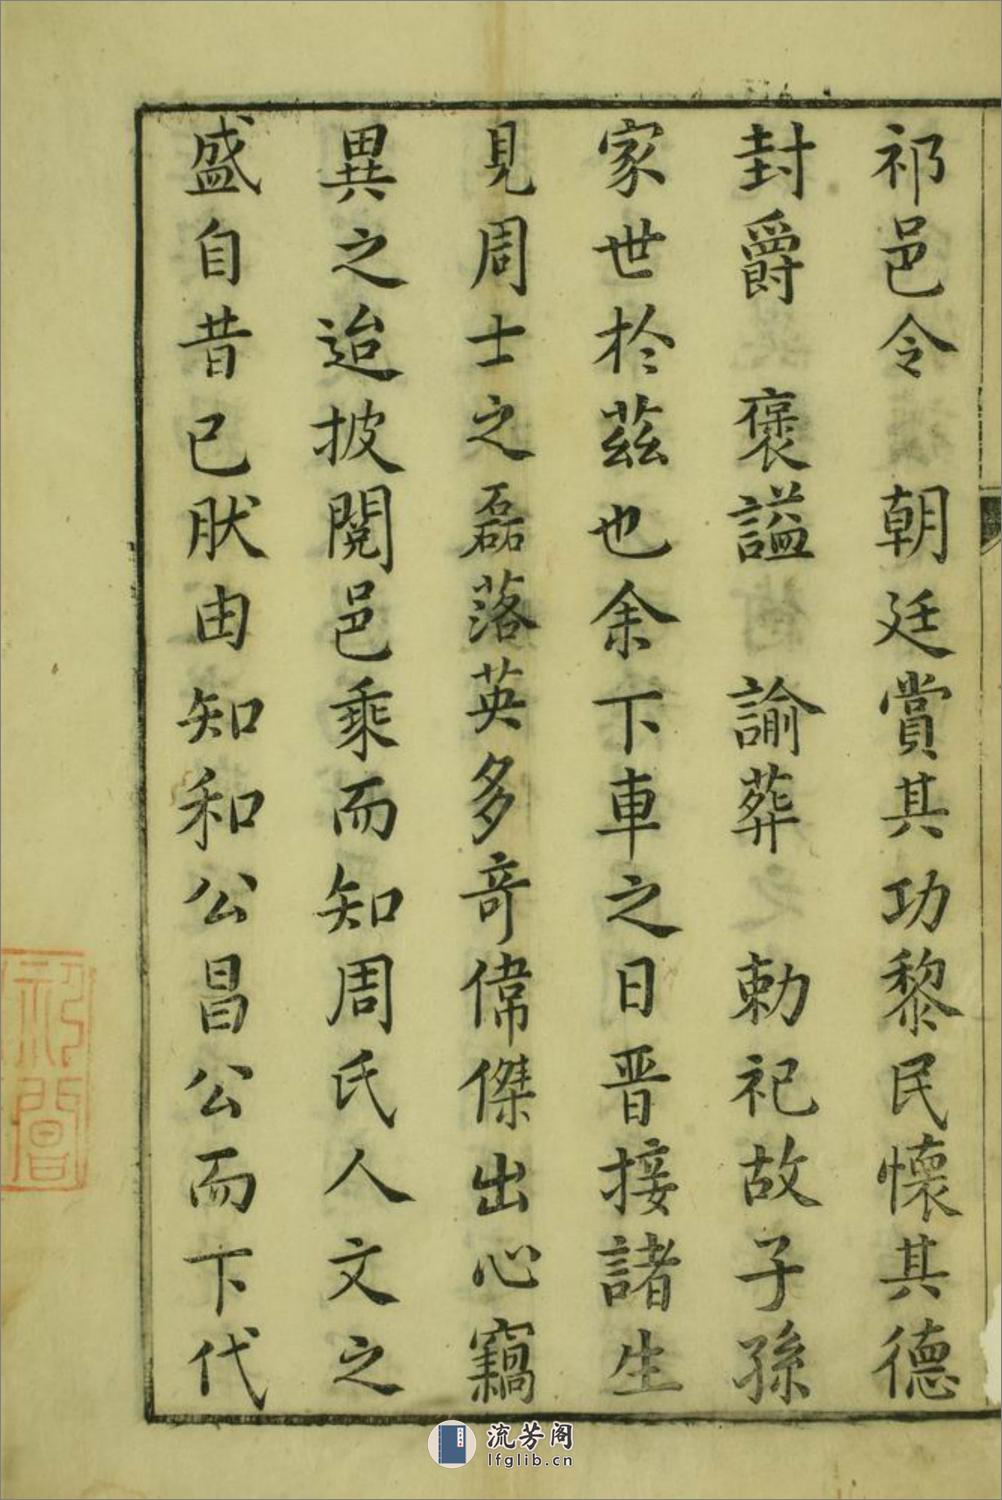 祁邑令　朝廷賞其功黎民懷其德
封爵　褒謚　諭葬　勅祀故子孫
家世於茲也余下車之日晋接諸生
見周士之磊落英多竒偉傑出心竊
異之迨披閱邑乘而知周氏人文之
盛自昔已肰由知和公昌公而下代
流芳阁
lfglib.cn